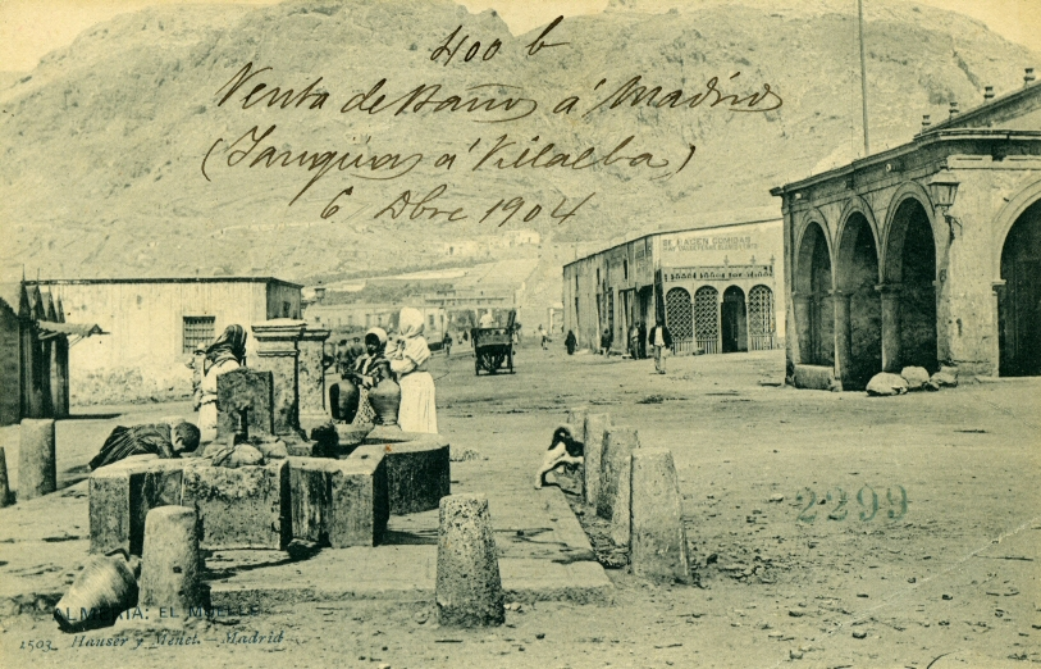 400 b
Venta de Baños á Madrid
á Villalba)
6 Dbre 1904
SE HACEN COMIDAS
2299
ALMERIA: EL MUELLE
1503 Hauser y Menet. - Madrid